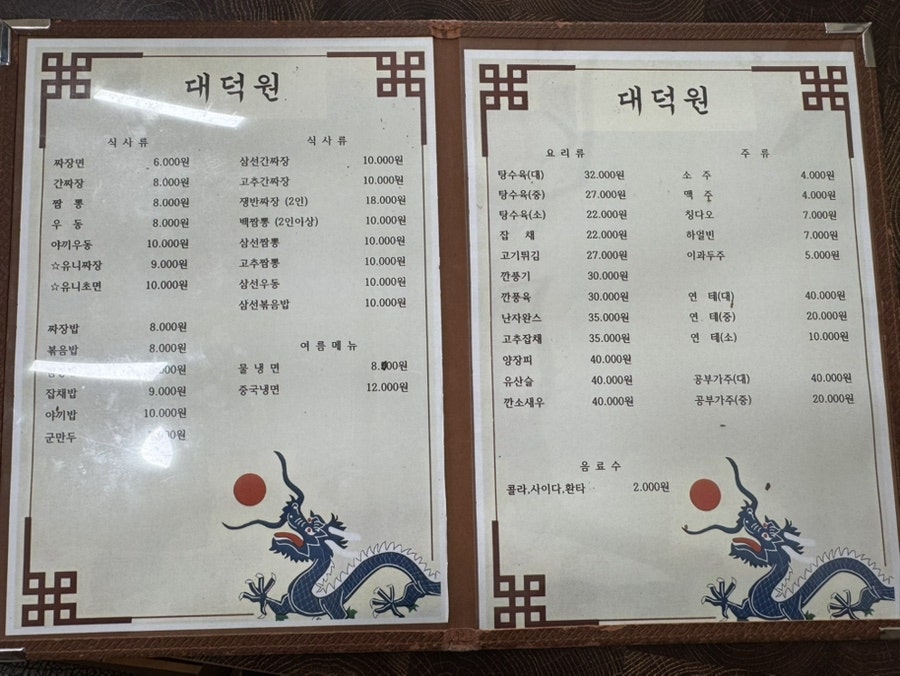 대덕원
식사류
짜장면 6.000원
간짜장 8.000원
짬 뽕 8.000원
우 동 8.000원
야끼우동 10.000원
☆유니짜장 9.000원
☆유니초면 10.000원
짜장밥 8.000원
볶음밥 8.000원
잡채밥 9.000원
야끼밥 10.000원
군만두
식사류
삼선간짜장 10.000원
고추간짜장 10.000원
쟁반짜장 (2인) 18.000원
백짬뽕 (2인이상) 10.000원
삼선짬뽕 10.000원
고추짬뽕 10.000원
삼선우동 10.000원
삼선볶음밥 10.000원
여름메뉴
물냉면
중국냉면 12.000원
대덕원
요리류
탕수육(대) 32.000원
탕수육(중) 27.000원
탕수육(소) 22.000원
잡 채 22.000원
고기튀김 27.000원
깐풍기 30.000원
깐풍육 30.000원
난자완스 35.000원
고추잡채 35.000원
양장피 40.000원
유산슬 40.000원
깐소새우 40.000원
주 류
소 주 4.000원
맥 주 4.000원
칭다오 7.000원
하얼빈 7.000원
이과두주 5.000원
연 테(대) 40.000원
연 테(중) 20.000원
연 테(소) 10.000원
공부가주(대) 40.000원
공부가주(중) 20.000원
음료수
콜라,사이다,환타 2.000원